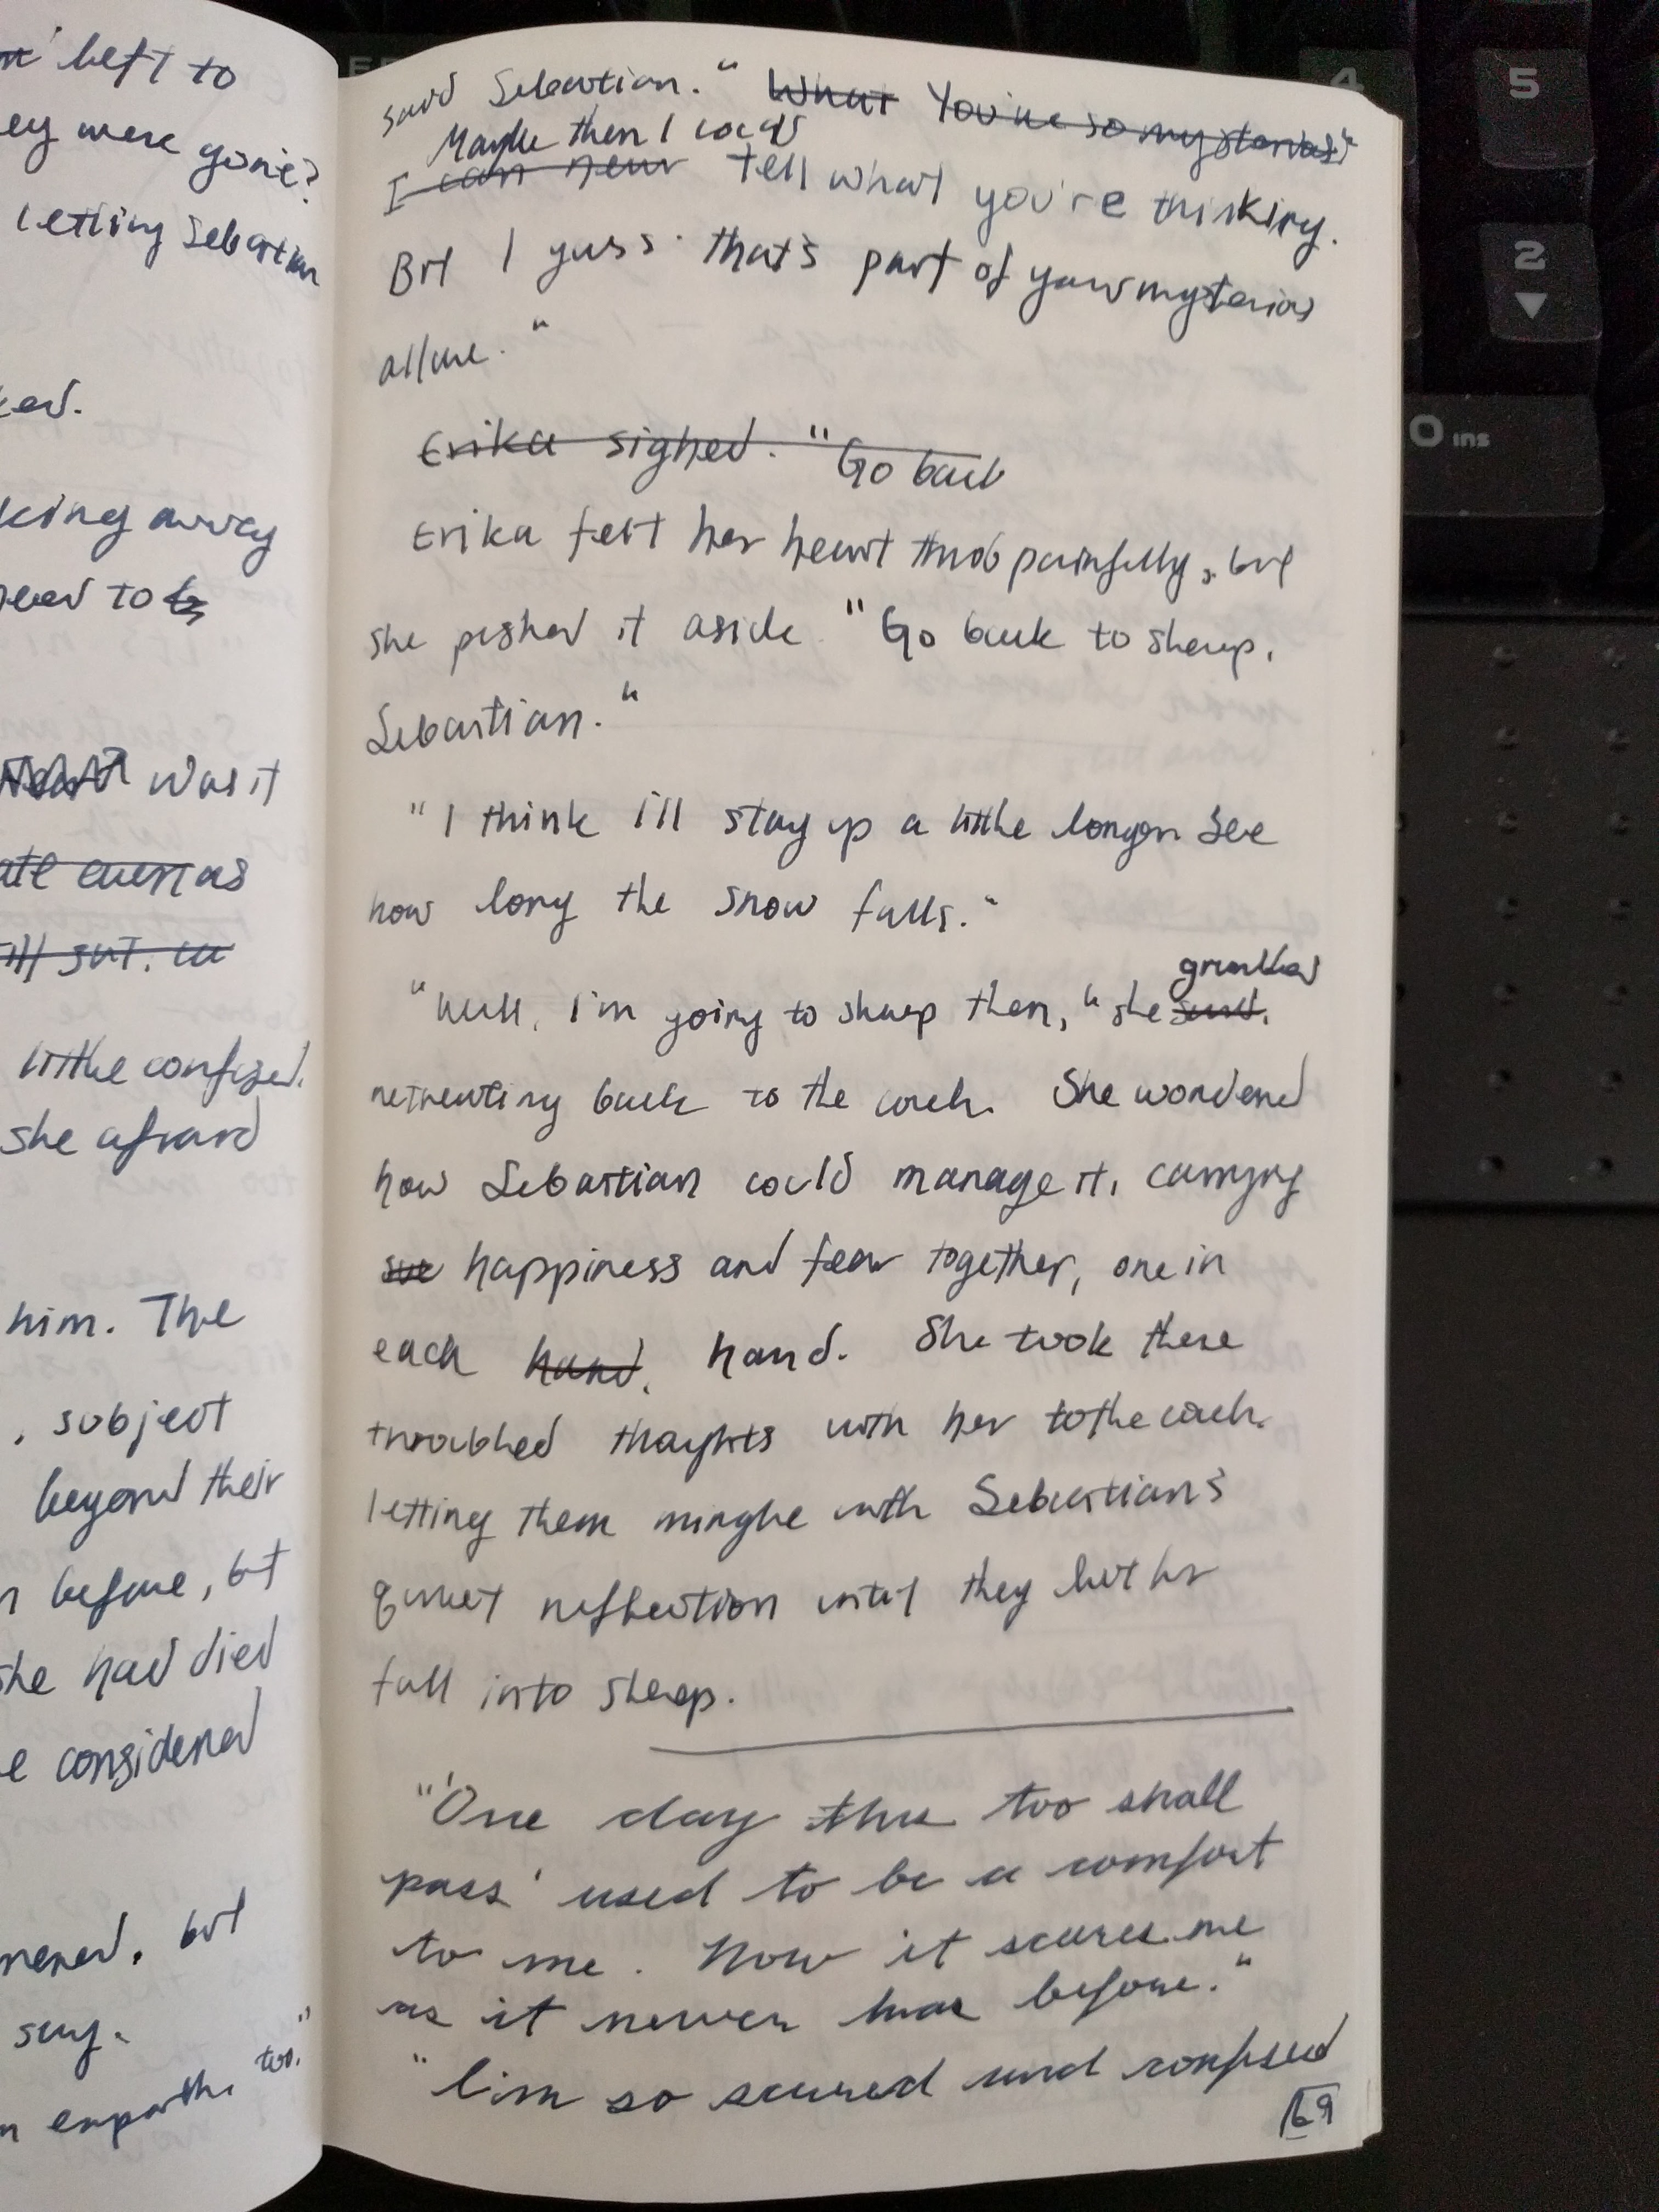 left to
ey were gone?
letting Sebastian
ked.
king away
to be
was it
ate even as
sat. in
little confused.
she afraid
him. The
, subject
beyond their
before, but
she had died
e considered
, but
say.
empath too."
said Sebastian." What You're so mysterious"
Maybe then I could
I can never tell what you're thinking.
But I guess that's part of your mysterious
allure."
Erika sighed. "Go back
Erika felt her heart throb painfully, but
she pushed it aside. "Go back to sleep,
Sebastian."
"I think I'll stay up a little longer. See
how long the snow falls."
grumbled
"Well, I'm going to sleep then," she said,
retreating back to the couch. She wondered
how Sebastian could manage it, carrying
happiness and fear together, one in
each hand, hand. She took these
troubled thoughts with her to the couch,
letting them mingle with Sebastian's
quiet reflection until they let her
fall into sleep.
"'One day this too shall
pass' used to be a comfort
to me. Now it scares me
as it never has before."
"I'm so scared and confused
69
4
5
2
0 ins